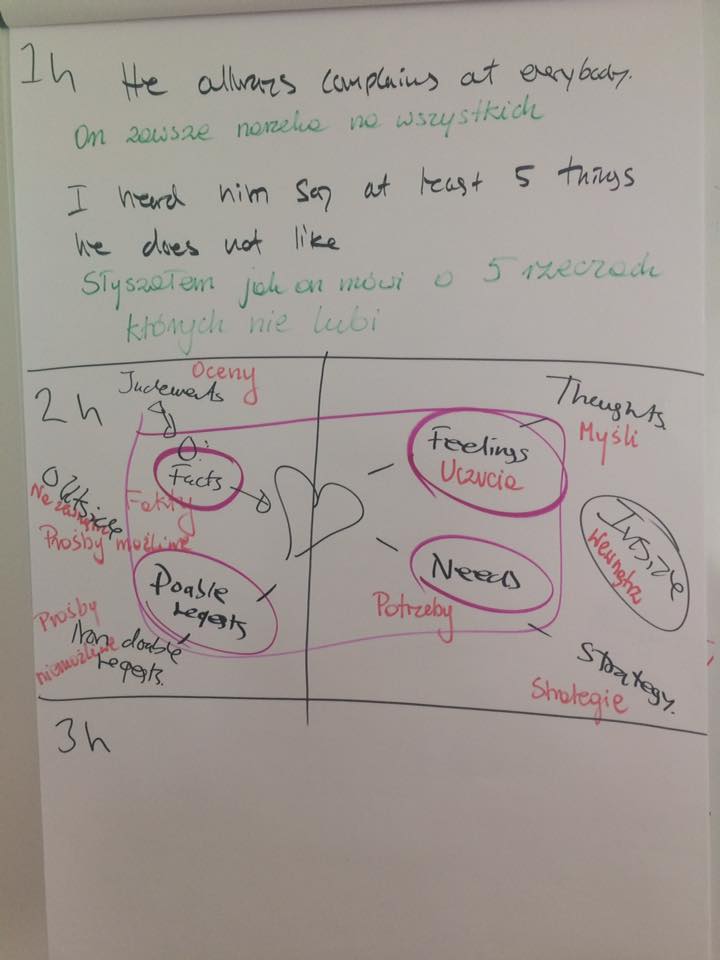 1h He allways complains at everybody.
On zawsze narzeka na wszystkich
I heard him say at least 5 things
he does not like
Słyszałem jak on mówi o 5 rzeczach
których nie lubi
2h
Oceny
Judements
Facts
Fakty
Outside
Prośby możliwe
Doable
reqests
Prośby
niemożliwe
Non doable
reqests.
Thoughts
Myśli
Feelings
Uczucia
Inside
wewnątrz
Needs
Potrzeby
Strategy.
Strategie
3h